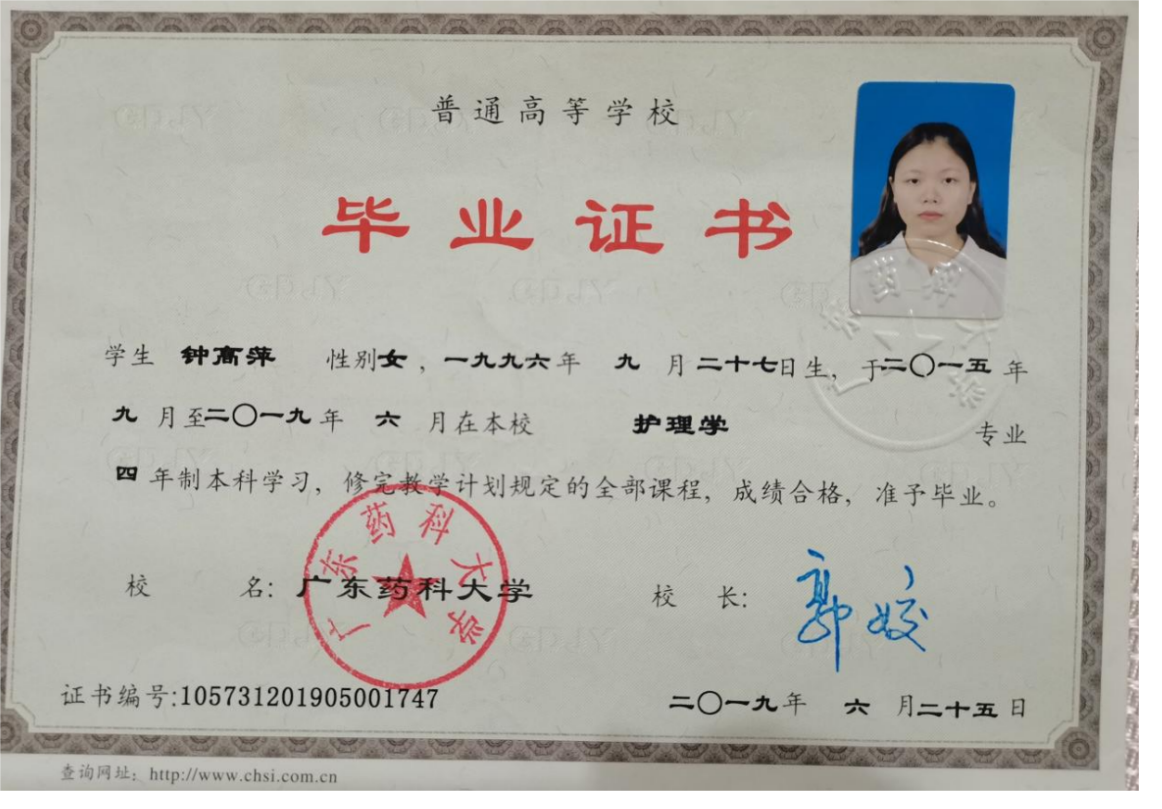 普通高等学校
毕业证书
学生 钟高萍 性别女，一九九六年 九 月二十七日生，于二〇一五年
九 月至二〇一九年 六 月在本校 护理学 专业
四 年制本科学习，修完教学计划规定的全部课程，成绩合格，准予毕业。
校 名：广东药科大学 校 长：郭姣
广东药科大学
证书编号:105731201905001747 二〇一九年 六 月二十五日
查询网址：http://www.chsi.com.cn